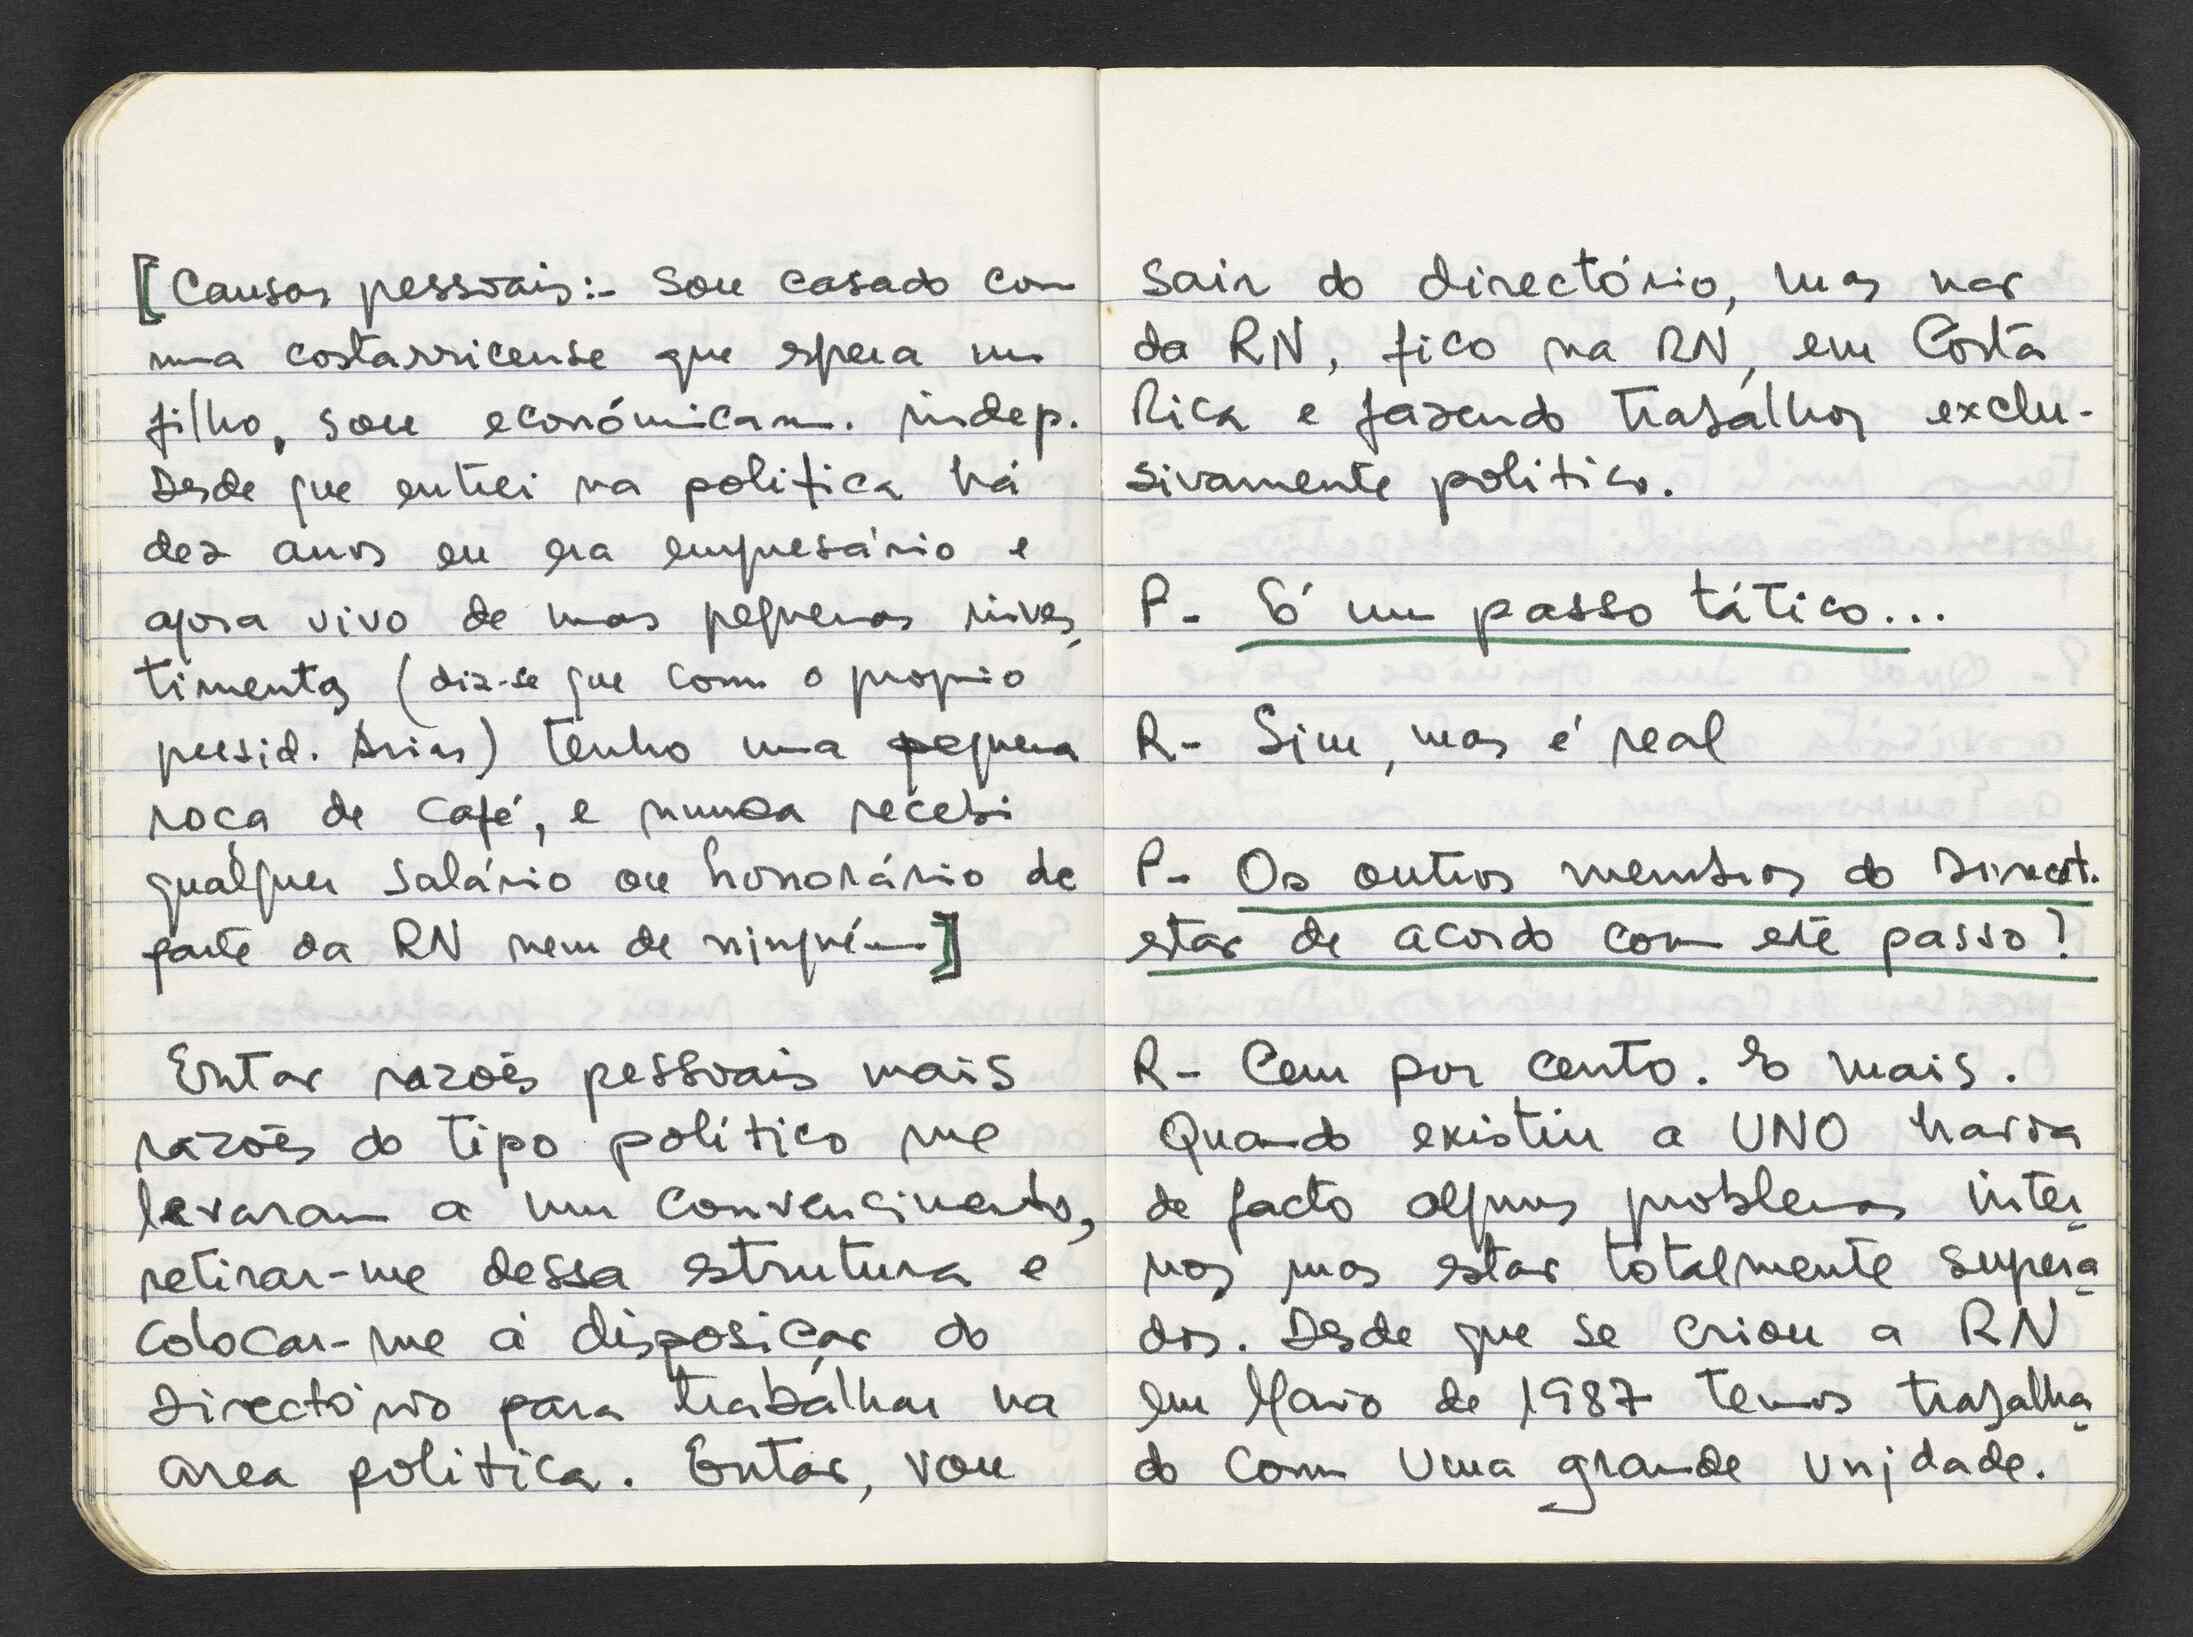 [Causas pessoais:- Sou casado com
uma costarricense que espera um
filho, sou económicam. indep.
Desde que entrei na politica há
dez anos eu era empresário e
agora vivo de umas pequenas inves-
timentos (diz-se que com o proprio
presid. Arias) tenho uma pequena
roça de café, e nunca recebi
qualquer salário ou honorário de
parte da RN nem de ninguém]
Entao razoẽs pessoais mais
razoẽs do tipo político me
levaram a um convencimento,
retirar-me dessa estrutura e
colocar-me á disposiçao do
Directório para trabalhar na
area politica. Entao, vou
sair do directório, mas nao
da RN, fico na RN, em Costa
Rica e fazendo trabalhos exclu-
sivamente politico.
P- É um passo tático...
R- Sim, mas é real
P- Os outros membros do Direct.
estao de acordo com este passo?
R- Cem por cento. E mais.
Quando existiu a UNO havia
de facto alguns problemas inter-
nos mas estao totalmente supera-
dos. Desde que se criou a RN
em Maio de 1987 temos trabalha-
do com uma grande unidade.